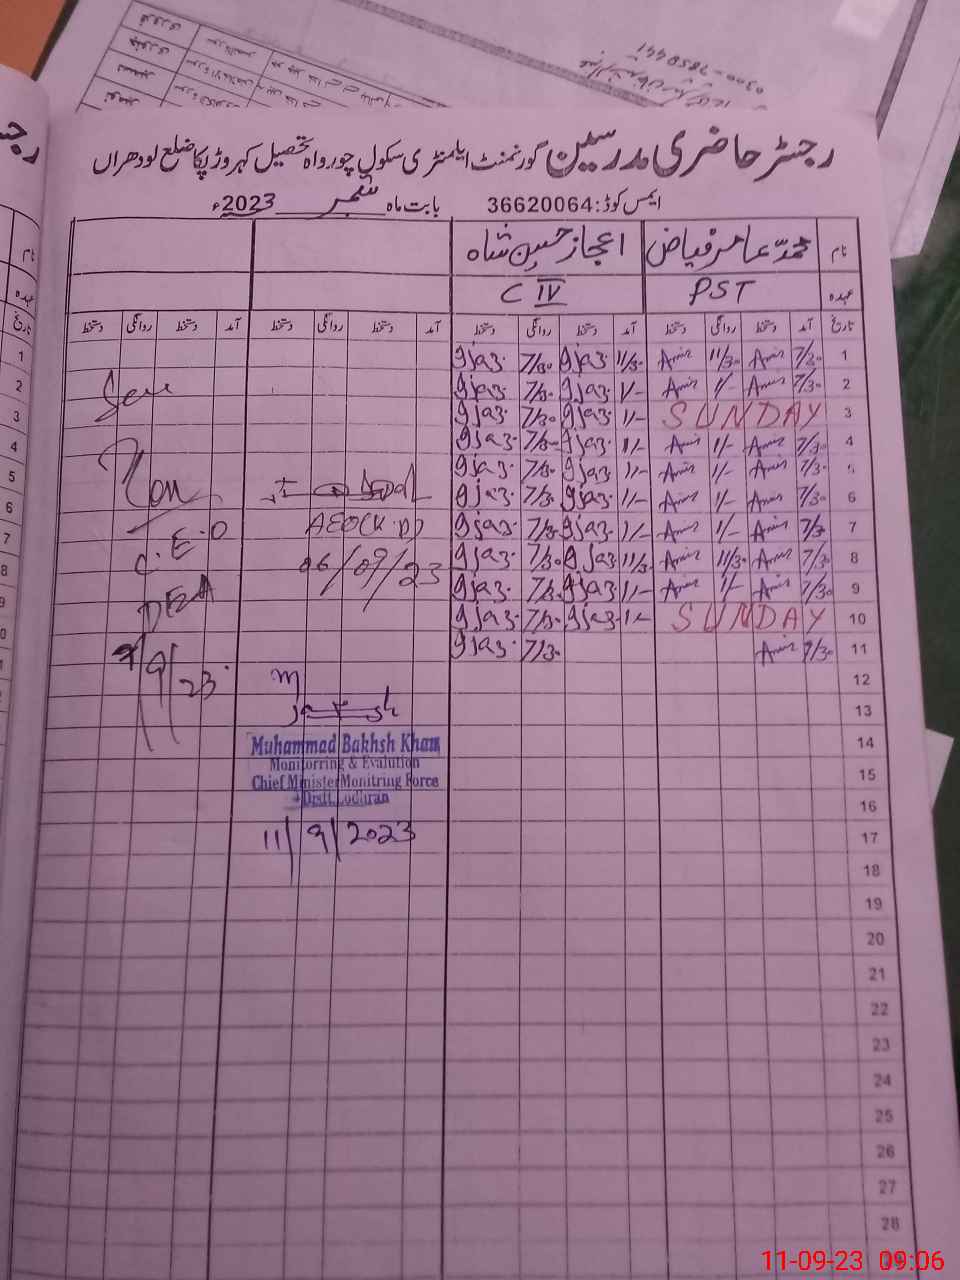 رجسٹر حاضری مدرسین گورنمنٹ ایلمنٹری سکول چورواہ تحصیل کہروڑ پکا ضلع لودھراں
ایمس کوڈ: 36620064 بابت ماہ ستمبر 2023ء
نام محمد عامر فیاض اعجاز حسین شاہ
عہدہ PST C IV
تاریخ آمد دستخط روانگی دستخط آمد دستخط روانگی دستخط آمد دستخط روانگی دستخط آمد دستخط روانگی دستخط
1 7/30 Amir 11/30 Amir 11/30 gjaz 7/30 gjaz
2 7/30 Amir 1/- Amir 1/- gjaz 7/30 gjaz
3 SUNDAY 1/- gjaz 7/30 gjaz
4 7/30 Amir 1/- Amir 1/- gjaz 7/30 gjaz
5 7/30 Amir 1/- Amir 1/- gjaz 7/30 gjaz
6 7/30 Amir 1/- Amir 1/- gjaz 7/30 gjaz
7 7/30 Amir 1/- Amir 1/- gjaz 7/30 gjaz
8 7/30 Amir 11/30 Amir 11/30 gjaz 7/30 gjaz
9 7/30 Amir 1/- Amir 1/- gjaz 7/30 gjaz
10 SUNDAY 1/- gjaz 7/30 gjaz
11 7/30 Amir 7/30 gjaz
12
13
14
15
16
17
18
19
20
21
22
23
24
25
26
27
28
Seen
AEO(K.P)
06/09/23
C.E.O
DEA
9/9/23
Muhammad Bakhsh Khan
Monitorring & Evalution
Chief Minister Monitring Force
Distt. Lodhran
11/9/2023
0300-7850441
11-09-23 09:06